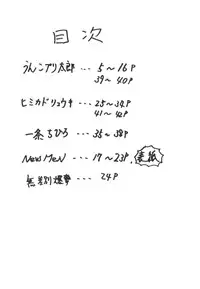 目次
うんこブリ太郎 … 5～16P
39～40P
ヒミカドリュウキ … 25～34P
41～42P
一条ちひろ … 35～38P
NewsMeN … 17～23P, 表紙
無差別選挙 … 24P